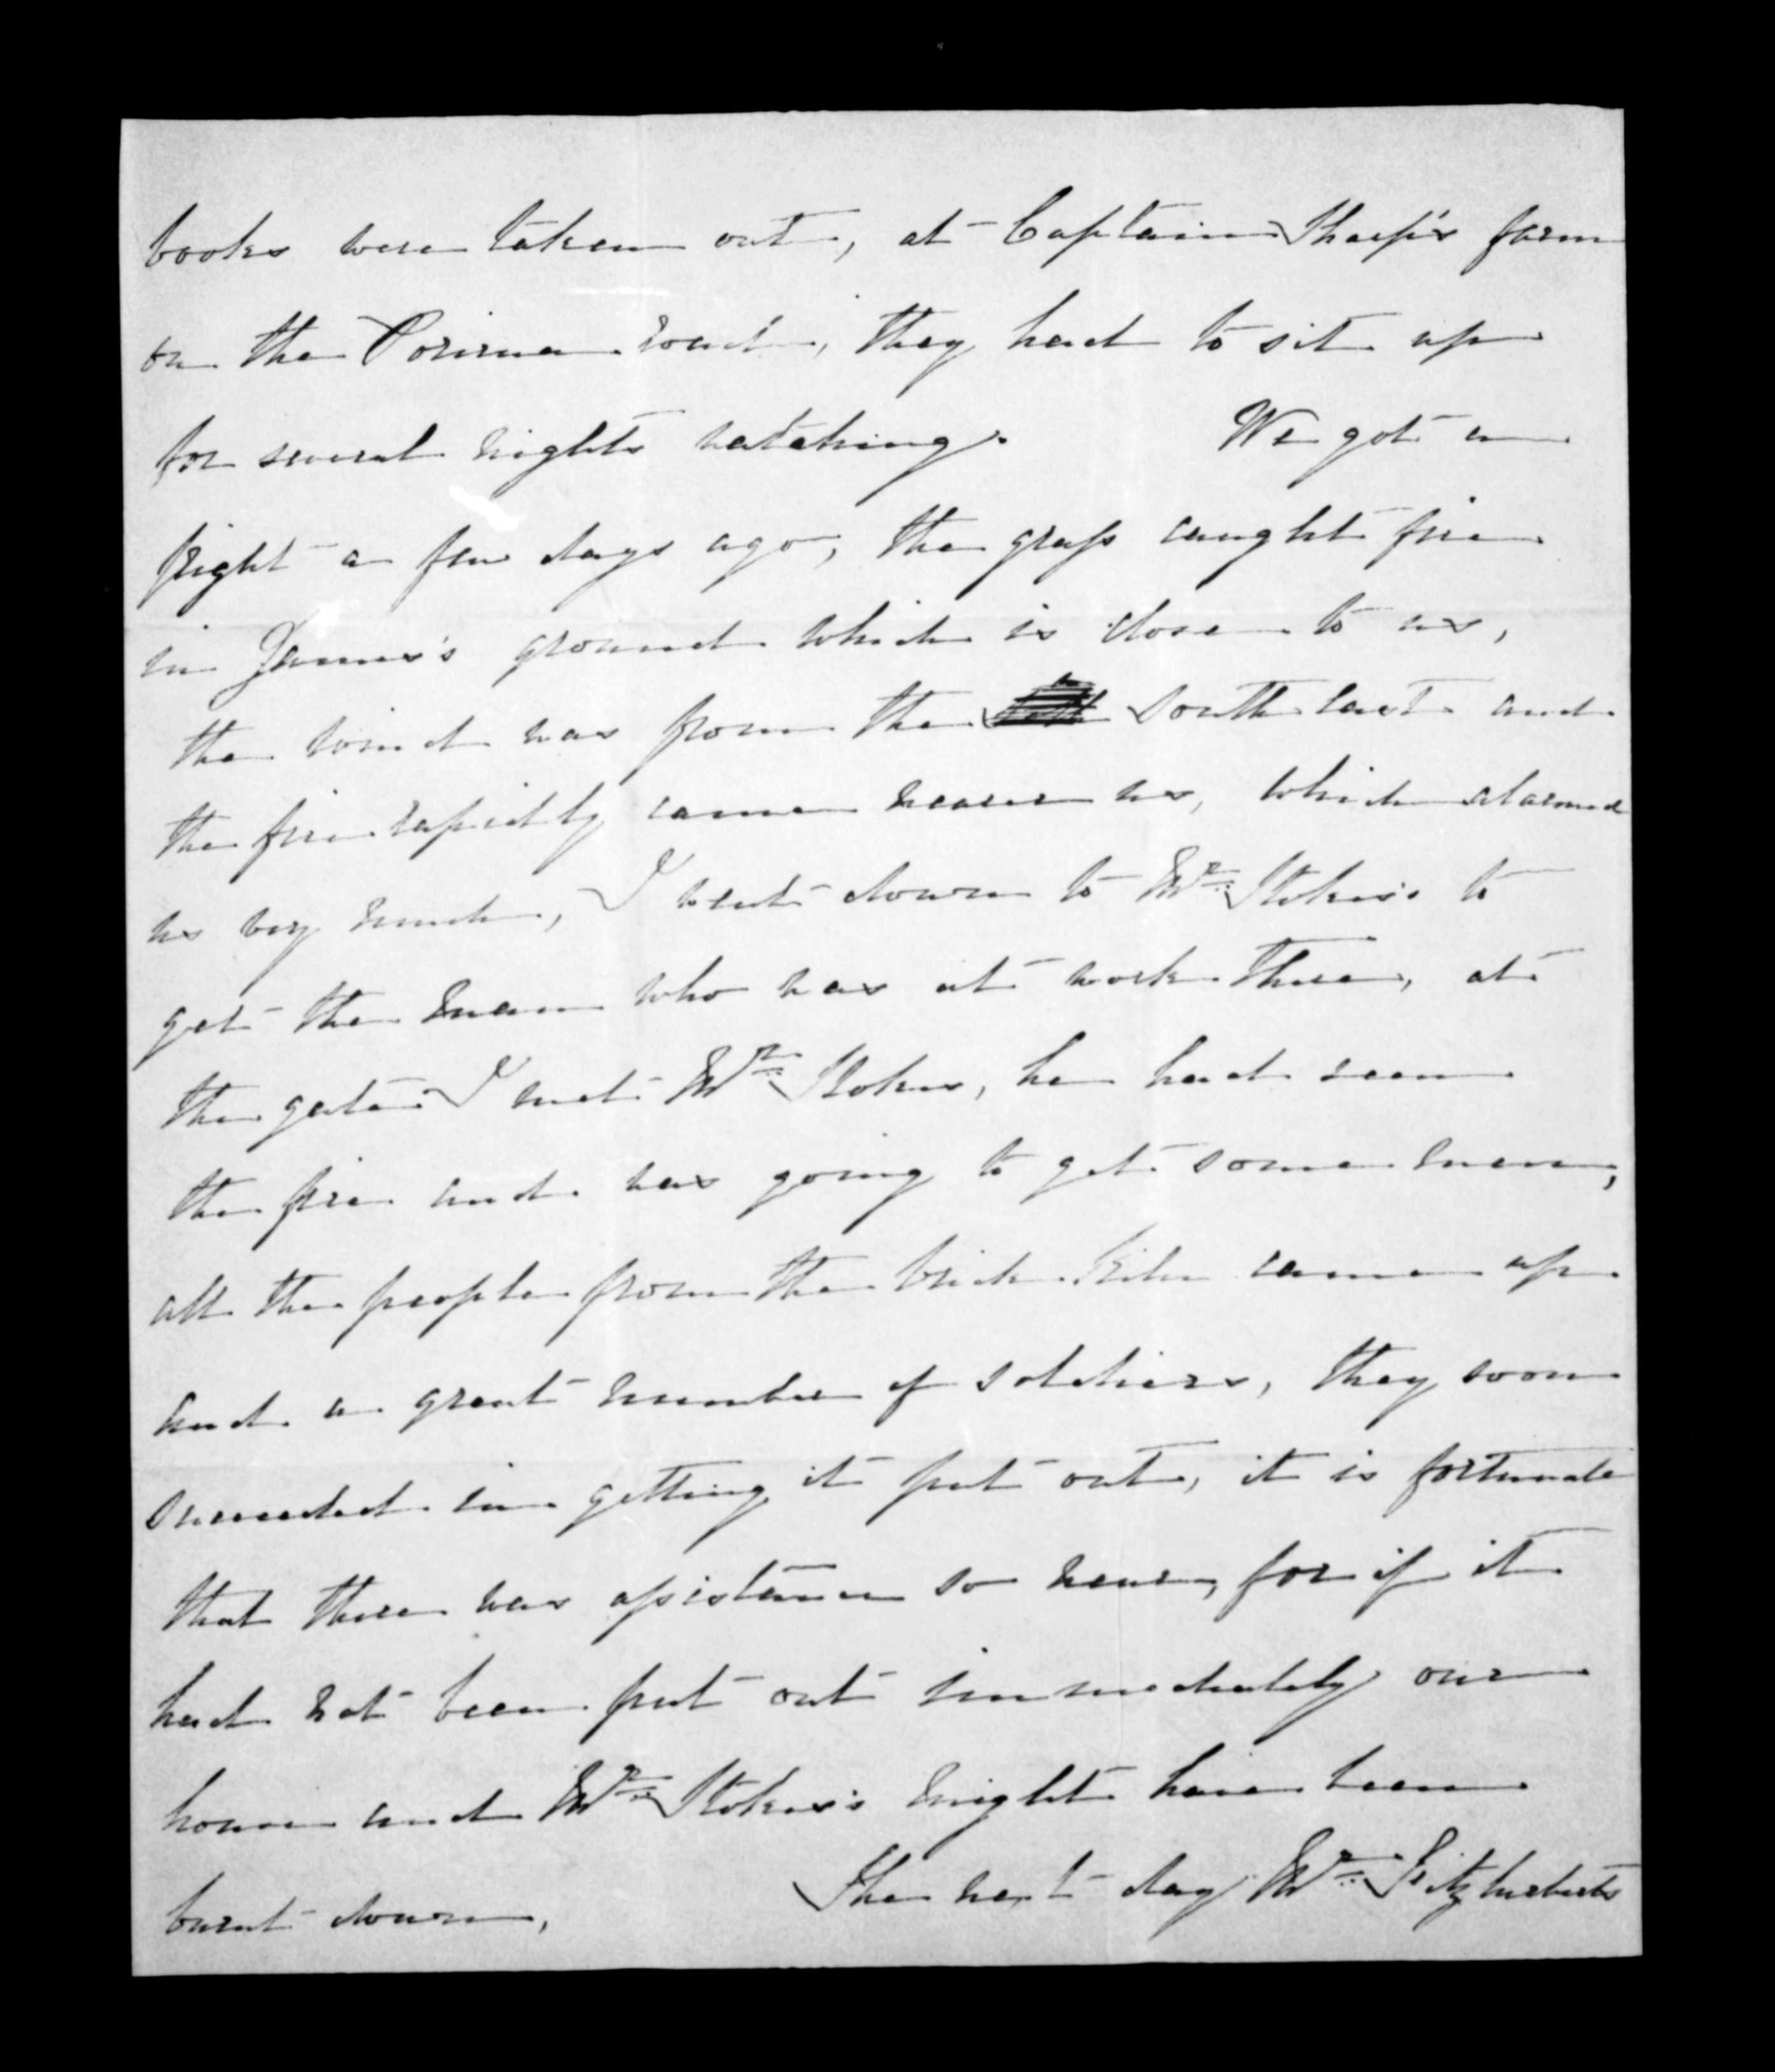 books were taken out, at Captain Sharp's farm
on the Porirua road, they had to sit up
for several nights watching. We got a
fright a few days ago, the grass caught fire
in James's ground which is close to us,
the wind was from the South east and
the fire rapidly came nearer us, which alarmed
us very much, I went down to Mr Stokes's to
get the man who was at work there, at
the gate I met Mr Stokes, he had seen
the fire and was going to get some men,
all the people from the brick kiln came up
and a great number of soldiers, they soon
succeeded in getting it put out, it is fortunate
that there was assistance so near, for if it
had not been put out immediately our
house and Mr Stokes's might have been
burnt down, The next day Mr Fitzherberts